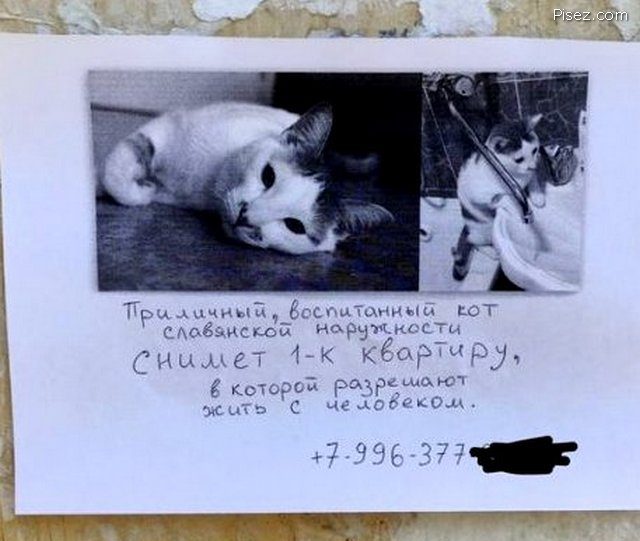 Pisez.com
Приличный, воспитанный кот
славянской наружности
снимет 1-к квартиру,
в которой разрешают
жить с человеком.
+7-996-377